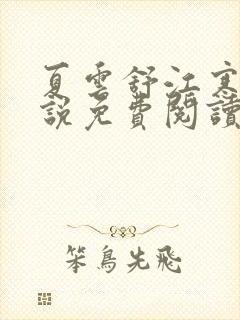 夏雲舒江寒
說免費閱讀
笨鳥先飛